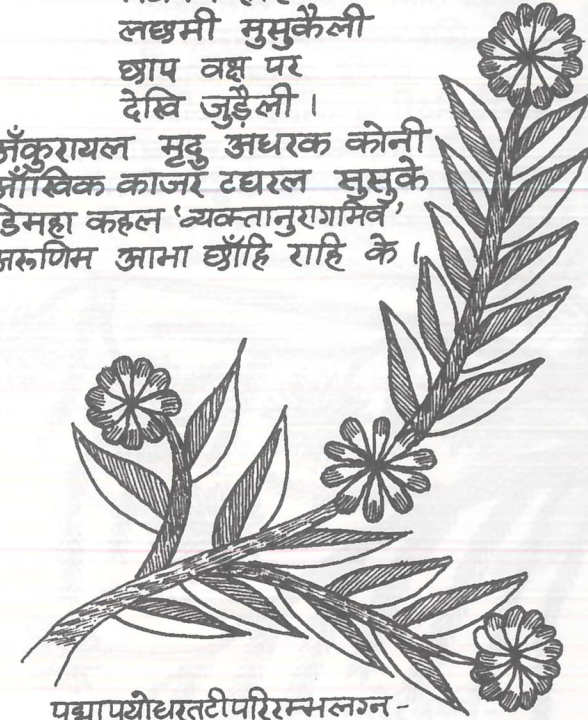 लछमी मुसुकैली
छाप वक्ष पर
देखि जुड़ैली।
अँकुरायल मृदु अधरक कोनी
आँखिक काजर टघरल सुसुके
कहल 'व्यक्तानुरागमिव'
अरुणिम आभा छाँहि राहि के।
पद्मापयोधरतटीपरिरम्भलग्न-